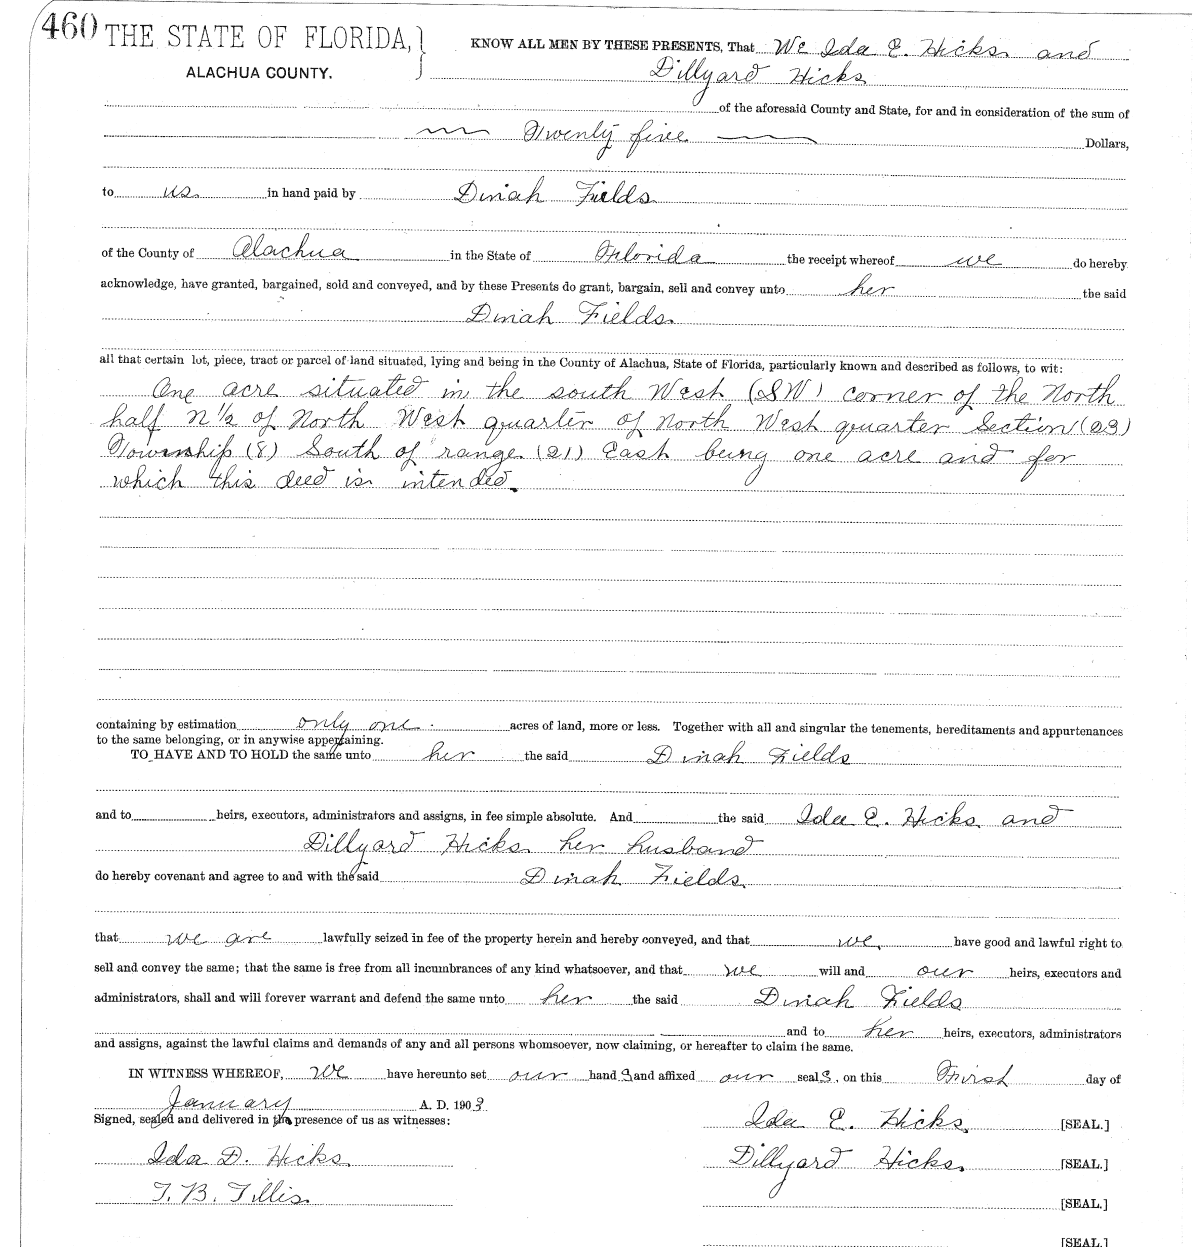 460 THE STATE OF FLORIDA, } KNOW ALL MEN BY THESE PRESENTS, That We Ida E. Hicks and
ALACHUA COUNTY. Dillyard Hicks
of the aforesaid County and State, for and in consideration of the sum of
Twenty five Dollars,
to us in hand paid by Dinah Fields
of the County of Alachua in the State of Florida the receipt whereof we do hereby
acknowledge, have granted, bargained, sold and conveyed, and by these Presents do grant, bargain, sell and convey unto her the said
Dinah Fields
all that certain lot, piece, tract or parcel of land situated, lying and being in the County of Alachua, State of Florida, particularly known and described as follows, to wit:
One acre situated in the south West (SW) corner of the North
half N 1/2 of North West quarter of North West quarter Section (23)
Township (8) South of range (21) East being one acre and for
which this deed is intended.
containing by estimation only one acres of land, more or less. Together with all and singular the tenements, hereditaments and appurtenances
to the same belonging, or in anywise appertaining.
TO HAVE AND TO HOLD the same unto her the said Dinah Fields
and to heirs, executors, administrators and assigns, in fee simple absolute. And the said Ida E. Hicks and
Dillyard Hicks her husband
do hereby covenant and agree to and with the said Dinah Fields
that we are lawfully seized in fee of the property herein and hereby conveyed, and that we have good and lawful right to
sell and convey the same; that the same is free from all incumbrances of any kind whatsoever, and that we will and our heirs, executors and
administrators, shall and will forever warrant and defend the same unto her the said Dinah Fields
and to her heirs, executors, administrators
and assigns, against the lawful claims and demands of any and all persons whomsoever, now claiming, or hereafter to claim the same.
IN WITNESS WHEREOF, we have hereunto set our hand s and affixed our seal s, on this First day of
January A. D. 1903
Signed, sealed and delivered in the presence of us as witnesses: Ida E. Hicks [SEAL.]
Ida D. Hicks Dillyard Hicks [SEAL.]
T. B. Tillis [SEAL.]
[SEAL.]